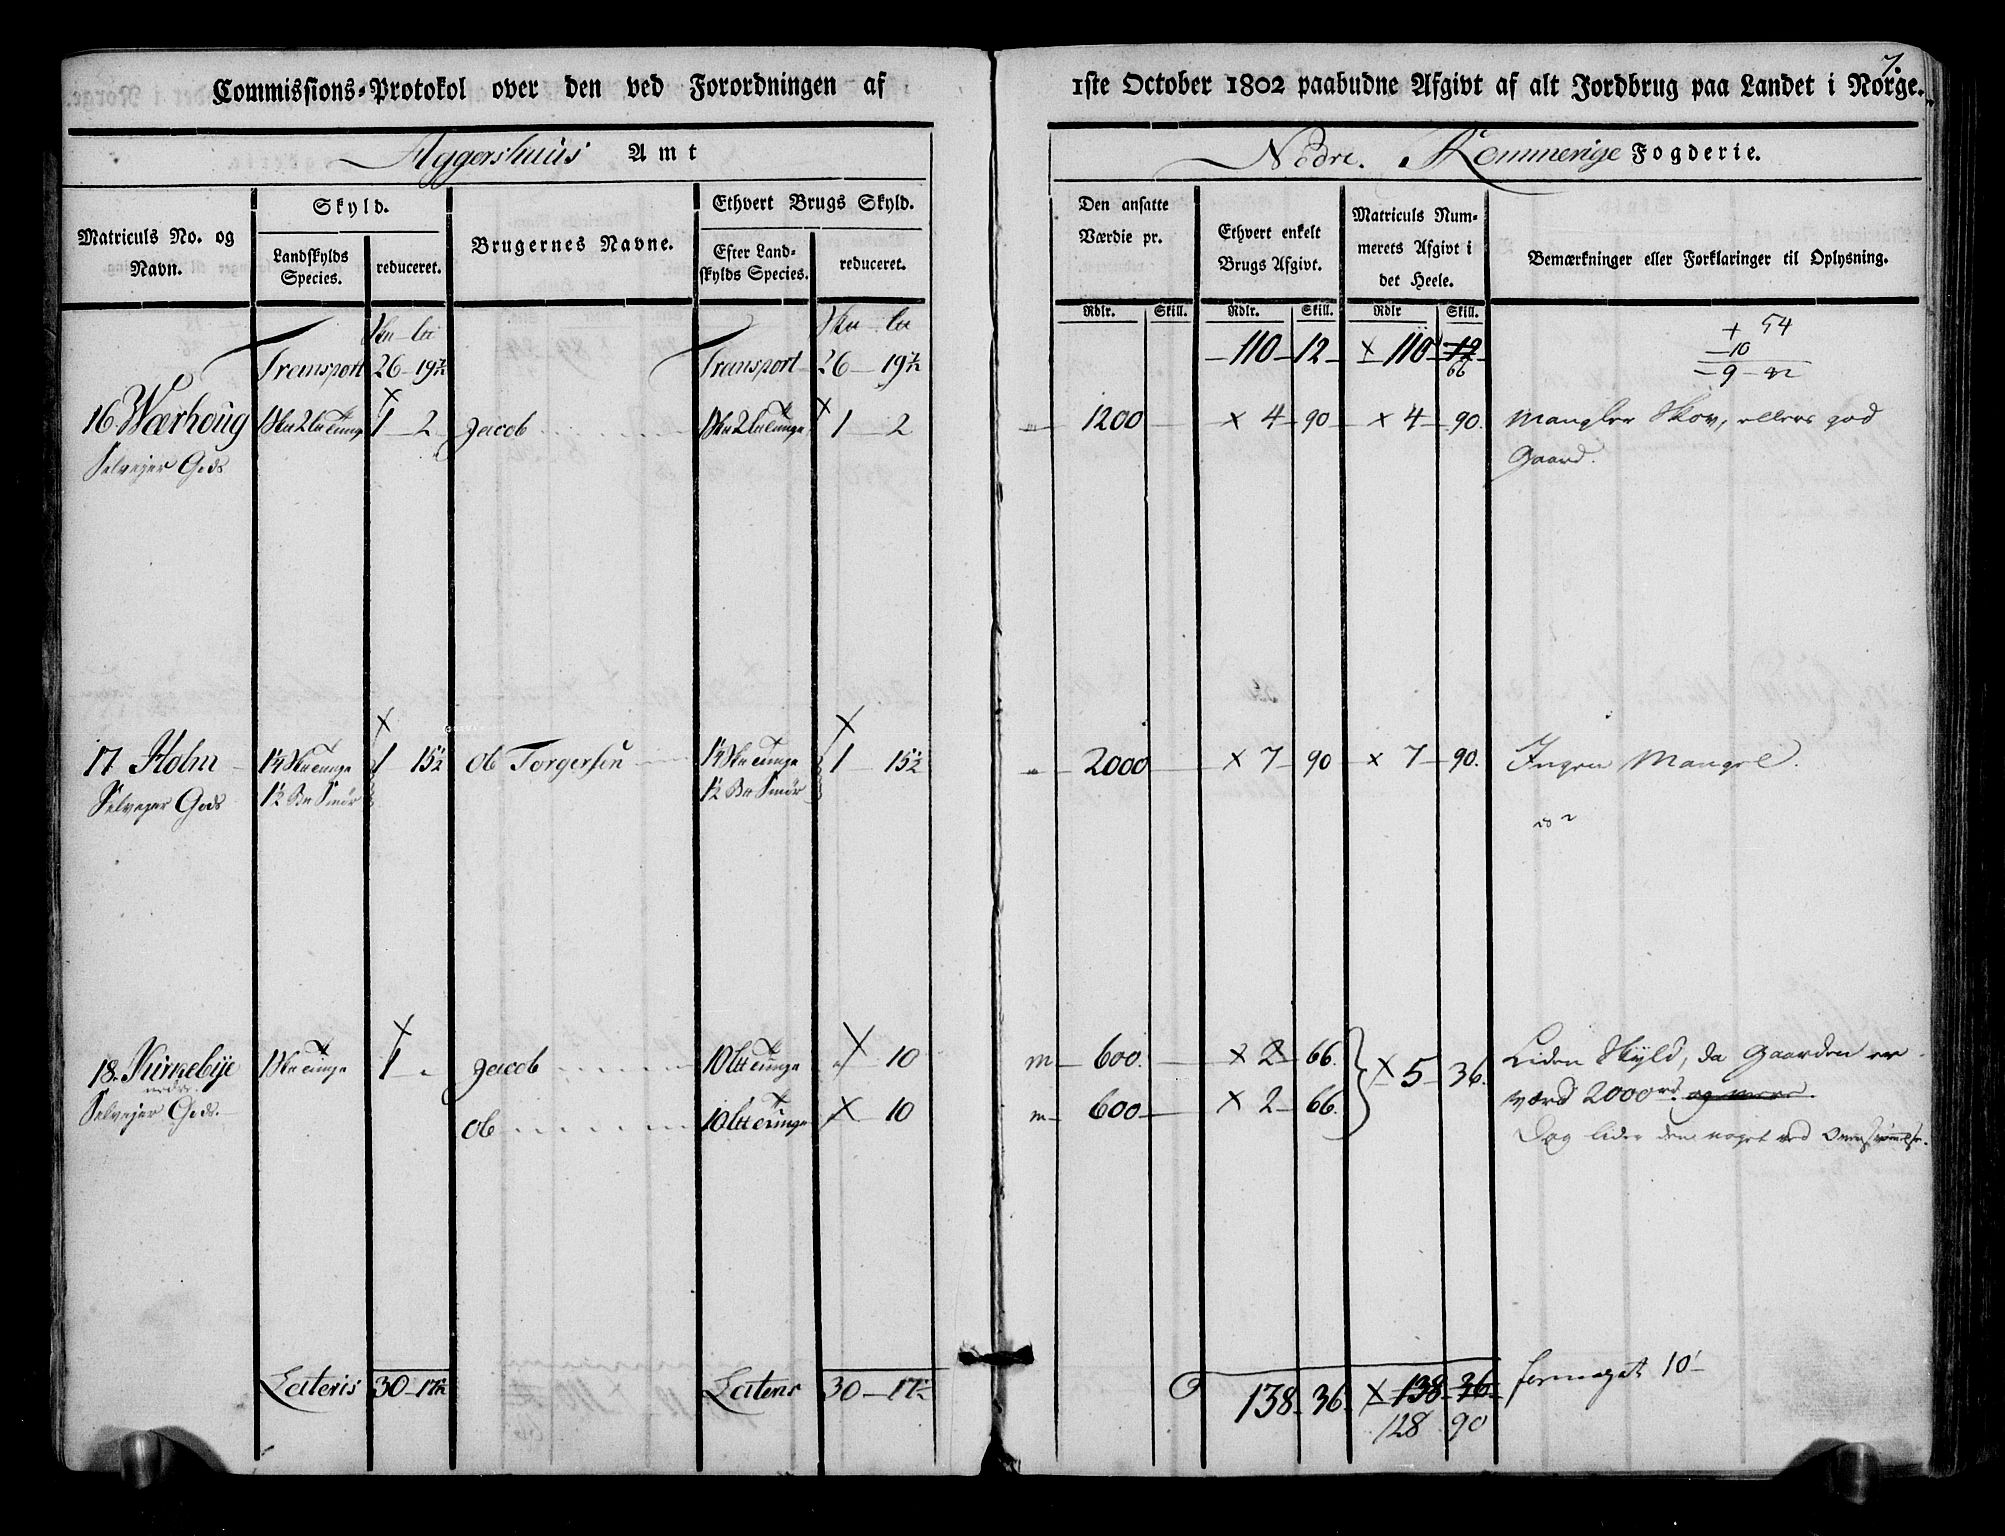 7.
Commissions-Protokol over den ved Forordningen af 1ste October 1802 paabudne Afgivt af alt Jordbrug paa Landet i Norge.
Aggershuus Amt
Nedre Rommerige Fogderie.
Matriculs No. og Navn.
Skyld.
Landskylds Species.
reduceret.
Brugernes Navne.
Ethvert Brugs Skyld.
Efter Landskylds Species.
reduceret.
Den ansatte Værdie pr.
Ethvert enkelt Brugs Afgivt.
Matriculs Nummerets Afgivt i det Heele.
Bemærkninger eller Forklaringer til Oplysning.
Rdlr. Skill. Rdlr. Skill. Rdlr Skill.
Transport 26 - 19½ Transport 26 - 19½ - 110 - 12 - × 110 - 12
66
+ 54
- 10
- 9 -
16 Wærhoug 1 Sku 2 Lu tunge × 1 - 2 Jacob 1 Sku 2 Lu tunge × 1 - 2 1200 × 4 - 90 × 4 - 90. Mangler Skov, ellers god
Selvejer Gods Gaard.
17 Holm 1¼ Sku tunge × 1 15½ Ole Torgersen 1¼ Sku tunge × 1 - 15½ 2000 × 7 - 90 × 7 - 90. Ingen Mangel.
Selvejer Gods 1½ Bu Smør 1½ Bu Smør
18. Kurnebye 1 Sku tunge × 1 - Jacob 10 Lu tunge × 10 m - 600. × 2 - 66. × 5 - 36. Liden Skyld, da Gaarden er
nedre
Selvejer Gods. værd 2000 rd. og mere.
Ole 10 Lu tunge × 10 m - 600 × 2 - 66.
Dog lider den noget ved
Lateris 30 - 17½ Lateris 30 - 17½ 138 - 36. × 138 - 36
128 90
10